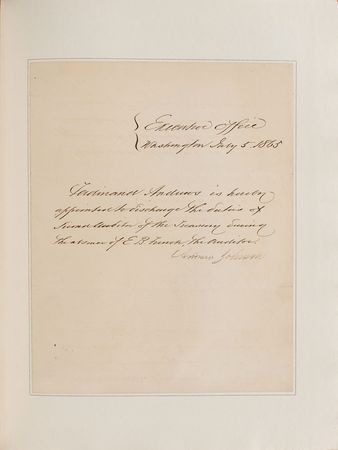 Executive Office
Washington July 5. 1865
Ferdinand Andrews is hereby
appointed to discharge the duties of
Second Auditor of the Treasury during
the absence of E B French, the Auditor.
Andrew Johnson